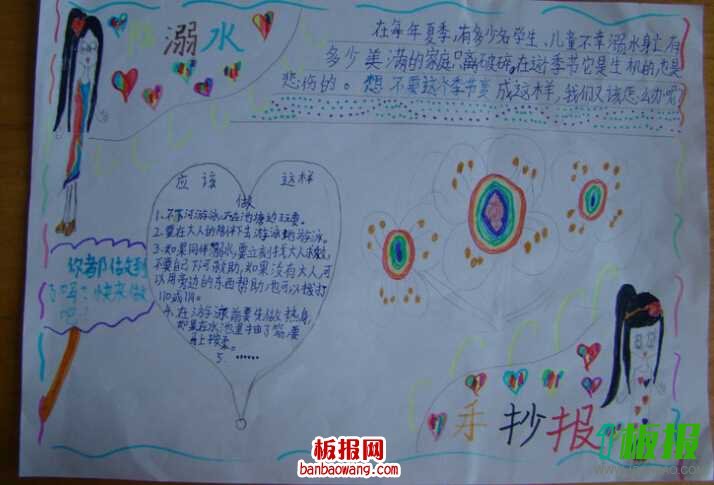 防溺水
在每年夏季,有多少名学生、儿童不幸溺水身亡有
多少美满的家庭只离破碎。在这季节它是生机的也是
悲伤的。想不要这个季节变成这样,我们又该怎么办呢
应该
这样
做
1、不下河游泳,不在池塘边玩耍。
2、要在大人的陪伴下去游泳
3、如果同伴溺水,要立刻找大人求救,
不要自己下河救助,如果没有大人,可
以用旁边的东西帮助,也可以拨打
110或119。
4、在游泳前要先做热身,
如果在水池里抽了筋要
马上按柔。
5、……
你都做到
了吗?快来做
吧!
手抄报
板报网
banbaowang.com
板报